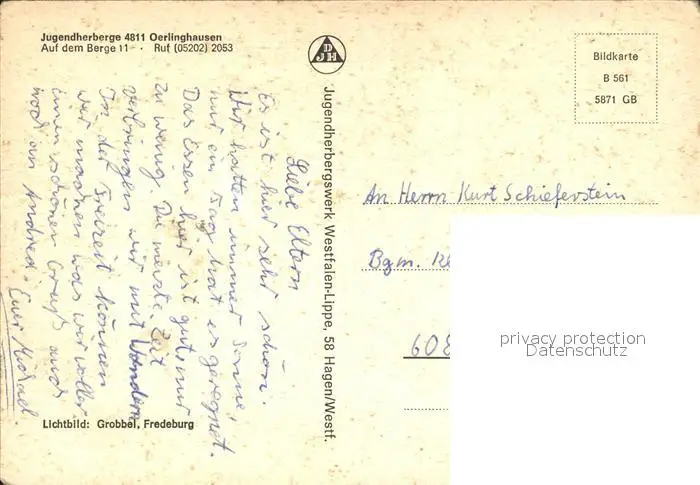 Jugendherberge 4811 Oerlinghausen
Auf dem Berge 11 · Ruf (05202) 2053
Liebe Eltern
Es ist hier sehr schön.
Wir hatten immer Sonne,
nur ein Tag hat es geregnet.
Das Essen hier ist gut nur
zu wenig. Die meiste Zeit
verbringen wir mit Wandern
In der Freizeit können
wir machen was wir wollen
einen schönen Gruß auch
noch an Andrea. Euer Michael.
Lichtbild: Grobbel, Fredeburg
DJH
Jugendherbergswerk Westfalen-Lippe, 58 Hagen/Westf.
Bildkarte
B 561
5871 GB
An Herrn Kurt Schieferstein
Bgm.
608
privacy protection
Datenschutz